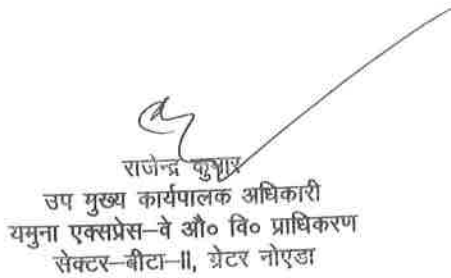 राजेन्द्र कुमार
उप मुख्य कार्यपालक अधिकारी
यमुना एक्सप्रेस–वे औ० वि० प्राधिकरण
सेक्टर–बीटा–II, ग्रेटर नोएडा